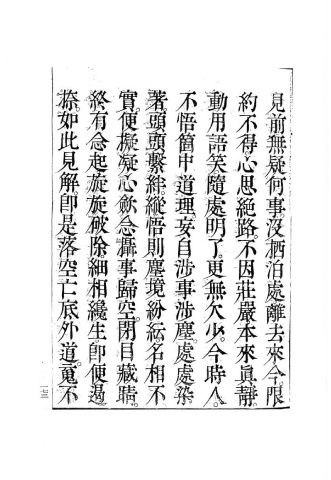 見前無疑何事沒栖泊處離去來今限
約不得心思絕路不因莊嚴本來眞靜
動用語笑隨處明了更無欠少今時人
不悟箇中道理妄自涉事涉塵處處染
著頭頭繫絆縱悟則塵境紛紜名相不
實便擬凝心歛念攝事歸空閉目藏睛
終有念起旋旋破除細相纔生卽便遏
捺如此見解卽是落空亡底外道䰟不
一三